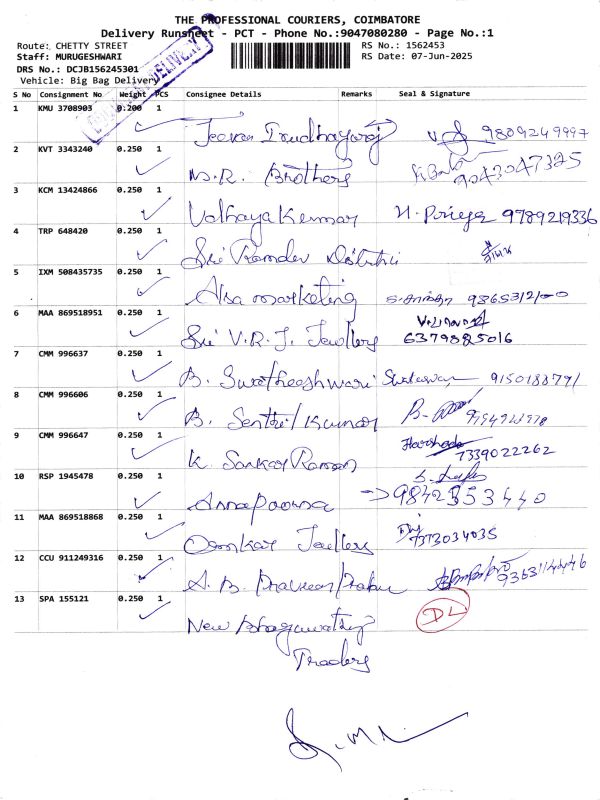 THE PROFESSIONAL COURIERS, COIMBATORE
Delivery Runsheet - PCT - Phone No.:9047080280 - Page No.:1
Route: CHETTY STREET
RS No.: 1562453
Staff: MURUGESHWARI
RS Date: 07-Jun-2025
DRS No.: DCJB156245301
Vehicle: Big Bag Delivery
S No Consignment No Weight PCS Consignee Details Remarks Seal & Signature
1 KMU 3708903 0.200 1
Jeeva Irudhayaraj 9809249997
2 KVT 3343240 0.250 1
M.R. Brothers 9043047325
3 KCM 13424866 0.250 1
Udhaya Kumar H. Priya 9789219336
4 TRP 648420 0.250 1
Sri Ramdev
5 IXM 508435735 0.250 1
Alsa marketing
6 MAA 869518951 0.250 1
Sri V.R.J. Jewllers 6379885016
7 CMM 996637 0.250 1
B. Swatheeshwari
8 CMM 996606 0.250 1
B. Senthil Kumar
9 CMM 996647 0.250 1
K. Sankar Raman 7339022262
10 RSP 1945478 0.250 1
Annapoorna → 9842353440
11 MAA 869518868 0.250 1
Omkar Jewllers 7373034035
12 CCU 911249316 0.250 1
A. B. Praveen Prabu
13 SPA 155121 0.250 1
New Bhagavathy DL
Traders